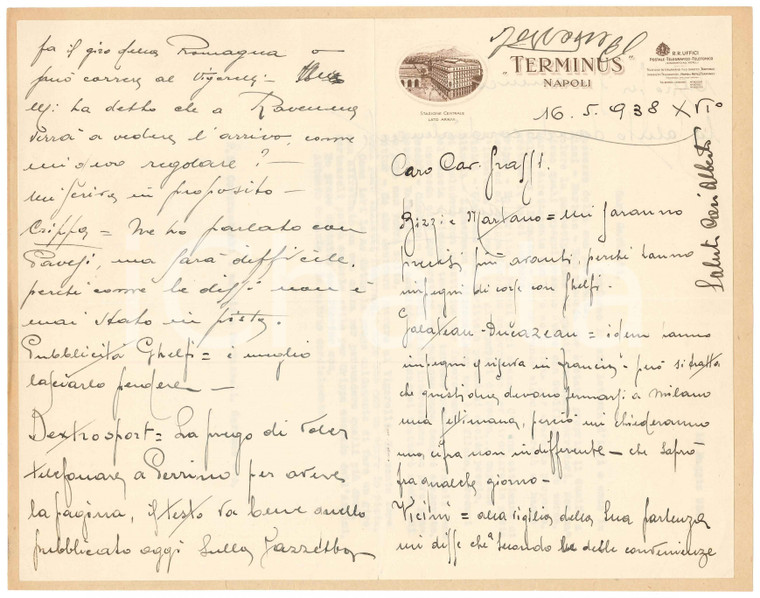 Personale
"TERMINUS"
NAPOLI
STAZIONE CENTRALE
LATO ARRIVI
R.R. UFFICI
POSTALE TELEGRAFICO TELEFONICO
16.5.938 XVIº
Caro Cav. Graffi.
Saluti Alberto
Bizzi e Martano = mi saranno
precisi più avanti, perché hanno
impegni di corse con Ghelfi.
Galateau - Ducazeau = idem hanno
impegni e riserva in Francia - però si tratta
che questi devono fermarsi a Milano
una settimana, perciò mi chiederanno
una cifra non indifferente - che saprò
fra qualche giorno -
Vicini = alla vigilia della Sua partenza
mi disse che secondo le delle convenienze
fa il giro della Romagna o
può correre al Vigorelli -
Mi ha detto che a Ravenna
verrà a vedere l'arrivo, come
mi devo regolare? -
Mi scriva in proposito -
Crippa = Ne ho parlato con
Pavesi, ma sarà difficile,
perché come le dissi non è
mai stato in pista.
Pubblicità Ghelfi = è meglio
lasciarlo perdere -
Dextrosport = La prego di voler
telefonare a Perrino per avere
la pagina, il testo va bene quello
pubblicato oggi sulla Gazzetta